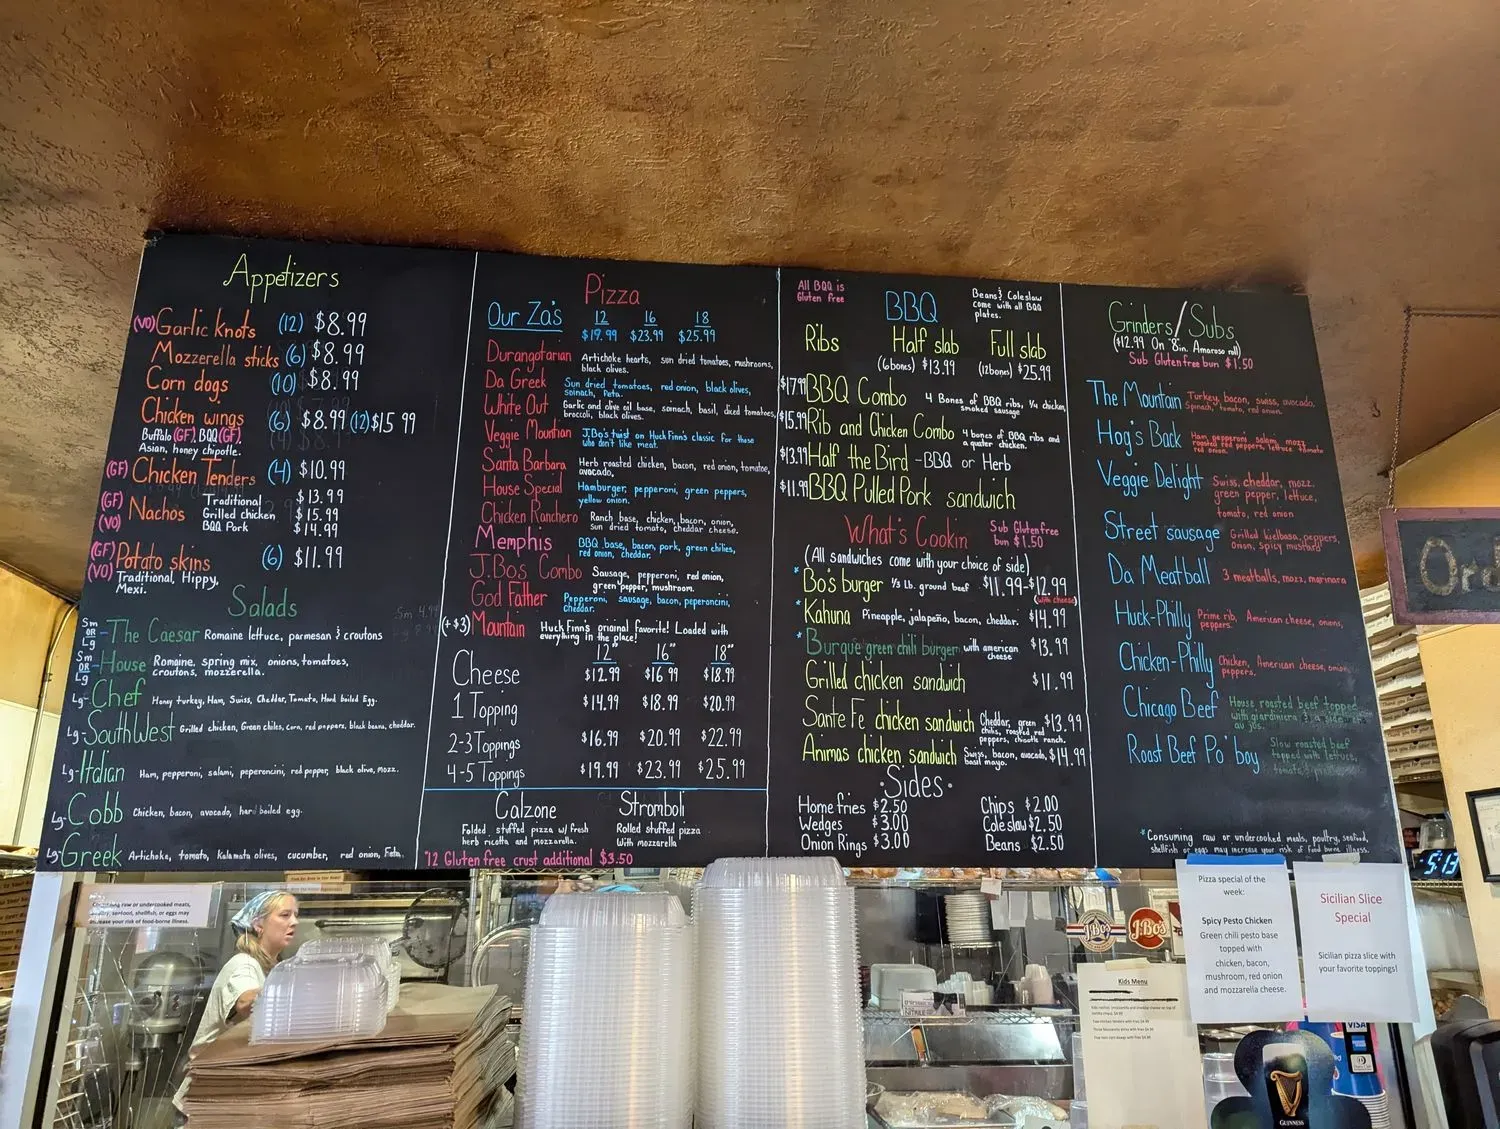 Appetizers
(VO) Garlic knots (12) $8.99
Mozzerella sticks (6) $8.99
Corn dogs (10) $8.99
Chicken wings (6) $8.99 (12) $15.99
Buffalo (GF), BBQ (GF),
Asian, honey chipotle.
(GF) Chicken Tenders (4) $10.99
(GF) (VO) Nachos
Traditional $13.99
Grilled chicken $15.99
BBQ Pork $14.99
(GF) (VO) Potato skins (6) $11.99
Traditional, Hippy,
Mexi.
Salads
Sm 4.99
Sm OR Lg - The Caesar Romaine lettuce, parmesan & croutons
Sm OR Lg - House Romaine, spring mix, onions, tomatoes,
croutons, mozzerella.
Lg - Chef Honey turkey, Ham, Swiss, Cheddar, Tomato, Hard boiled Egg.
Lg - SouthWest Grilled chicken, Green chiles, corn, red peppers, black beans, cheddar.
Lg - Italian Ham, pepperoni, salami, peperoncini, red pepper, black olive, mozz.
Lg - Cobb Chicken, bacon, avocado, hard boiled egg.
Lg - Greek Artichoke, tomato, Kalamata olives, cucumber, red onion, Feta.
Pizza
Our Za's 12 16 18
$19.99 $23.99 $25.99
Durangotarian Artichoke hearts, sun dried tomatoes, mushrooms,
black olives.
Da Greek Sun dried tomatoes, red onion, black olives,
spinach, feta.
White Out Garlic and olive oil base, spinach, basil, diced tomatoes,
broccoli, black olives.
Veggie Mountian J.Bo's twist on Huck Finn's classic for those
who don't like meat.
Santa Barbara Herb roasted chicken, bacon, red onion, tomatoe,
avocado.
House Special Hamburger, pepperoni, green peppers,
yellow onion.
Chicken Ranchero Ranch base, chicken, bacon, onion,
sun dried tomato, cheddar cheese.
Memphis BBQ base, bacon, pork, green chilies,
red onion, cheddar.
J.Bos Combo Sausage, pepperoni, red onion,
green pepper, mushroom.
God Father Pepperoni, sausage, bacon, peperoncini,
cheddar.
(+$3) Mountain Huck Finn's original favorite! Loaded with
everything in the place!
12" 16" 18"
Cheese $12.99 $16.99 $18.99
1 Topping $14.99 $18.99 $20.99
2-3 Toppings $16.99 $20.99 $22.99
4-5 Toppings $19.99 $23.99 $25.99
Calzone
Folded stuffed pizza w/ fresh
herb ricotta and mozzarella.
Stromboli
Rolled stuffed pizza
With mozzarella
12 Gluten free crust additional $3.50
All BBQ is
Gluten free
BBQ
Beans & Coleslaw
come with all BBQ
plates.
Ribs Half slab Full slab
(6bones) $13.99 (12bones) $25.99
$17.99 BBQ Combo 4 Bones of BBQ ribs, 1/4 chicken,
smoked sausage
$15.99 Rib and Chicken Combo 4 bones of BBQ ribs and
a quater chicken.
$13.99 Half the Bird - BBQ or Herb
$11.99 BBQ Pulled Pork sandwich
What's Cookin
Sub Gluten free
bun $1.50
(All sandwiches come with your choice of side)
* Bo's burger 1/3 Lb. ground beef $11.99-$12.99
(with cheese)
* Kahuna Pineapple, jalapeño, bacon, cheddar. $14.99
* Burque green chili burger with american
cheese $13.99
Grilled chicken sandwich $11.99
Sante Fe chicken sandwich Cheddar, green
chilis, roasted red
peppers, chipotle ranch. $13.99
Animas chicken sandwich Swiss, bacon, avocado,
basil mayo. $14.99
Sides
Home fries $2.50
Wedges $3.00
Onion Rings $3.00
Chips $2.00
Coleslaw $2.50
Beans $2.50
Grinders/Subs
($12.99 On 8in. Amoroso roll)
Sub Gluten free bun $1.50
The Mountain Turkey, bacon, swiss, avocado,
Spinach, tomato, red onion.
Hog's Back Ham, pepperoni, salami, mozz
roasted red peppers, lettuce tomato
red onion.
Veggie Delight Swiss, cheddar, mozz.
green pepper, lettuce,
tomato, red onion
Street sausage Grilled kielbasa, peppers,
Onion, spicy mustard
Da Meatball 3 meatballs, mozz, marinara
Huck-Philly Prime rib, American cheese, onions,
peppers.
Chicken-Philly Chicken, American cheese, onion,
peppers.
Chicago Beef House roasted beef topped
with giardiniera & a side
au jus.
Roast Beef Po' boy Slow roasted beef
topped with lettuce,
* Consuming raw or undercooked meats, poultry, seafood,
shellfish or eggs may increase your risk of food borne illness.
5:13
Consuming raw or undercooked meats,
poultry, seafood, shellfish, or eggs may
increase your risk of food-borne illness.
Pizza special of the
week:
Spicy Pesto Chicken
Green chili pesto base
topped with
chicken, bacon,
mushroom, red onion
and mozzarella cheese.
Sicilian Slice
Special
Sicilian pizza slice with
your favorite toppings!
J.Bo's
J.Bo's
Kids Menu
VISA
GUINNESS